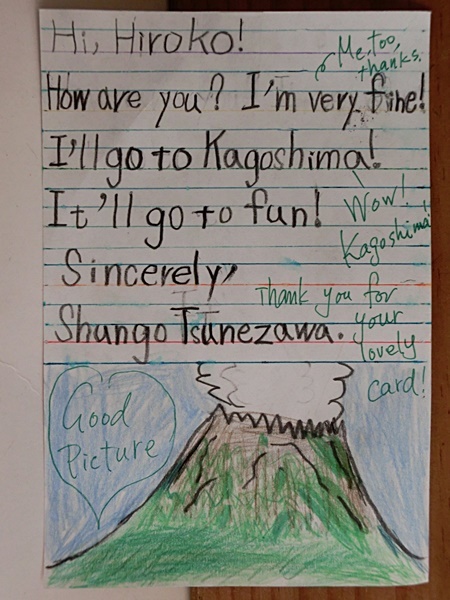 Hi, Hiroko!
Me, too,
thanks.
How are you? I'm very fine!
I'll go to Kagoshima!
Wow!
Kagoshima!
It'll go to fun!
Sincerely,
Shungo Tsunezawa.
Thank you for
your
lovely
card!
Good
Picture